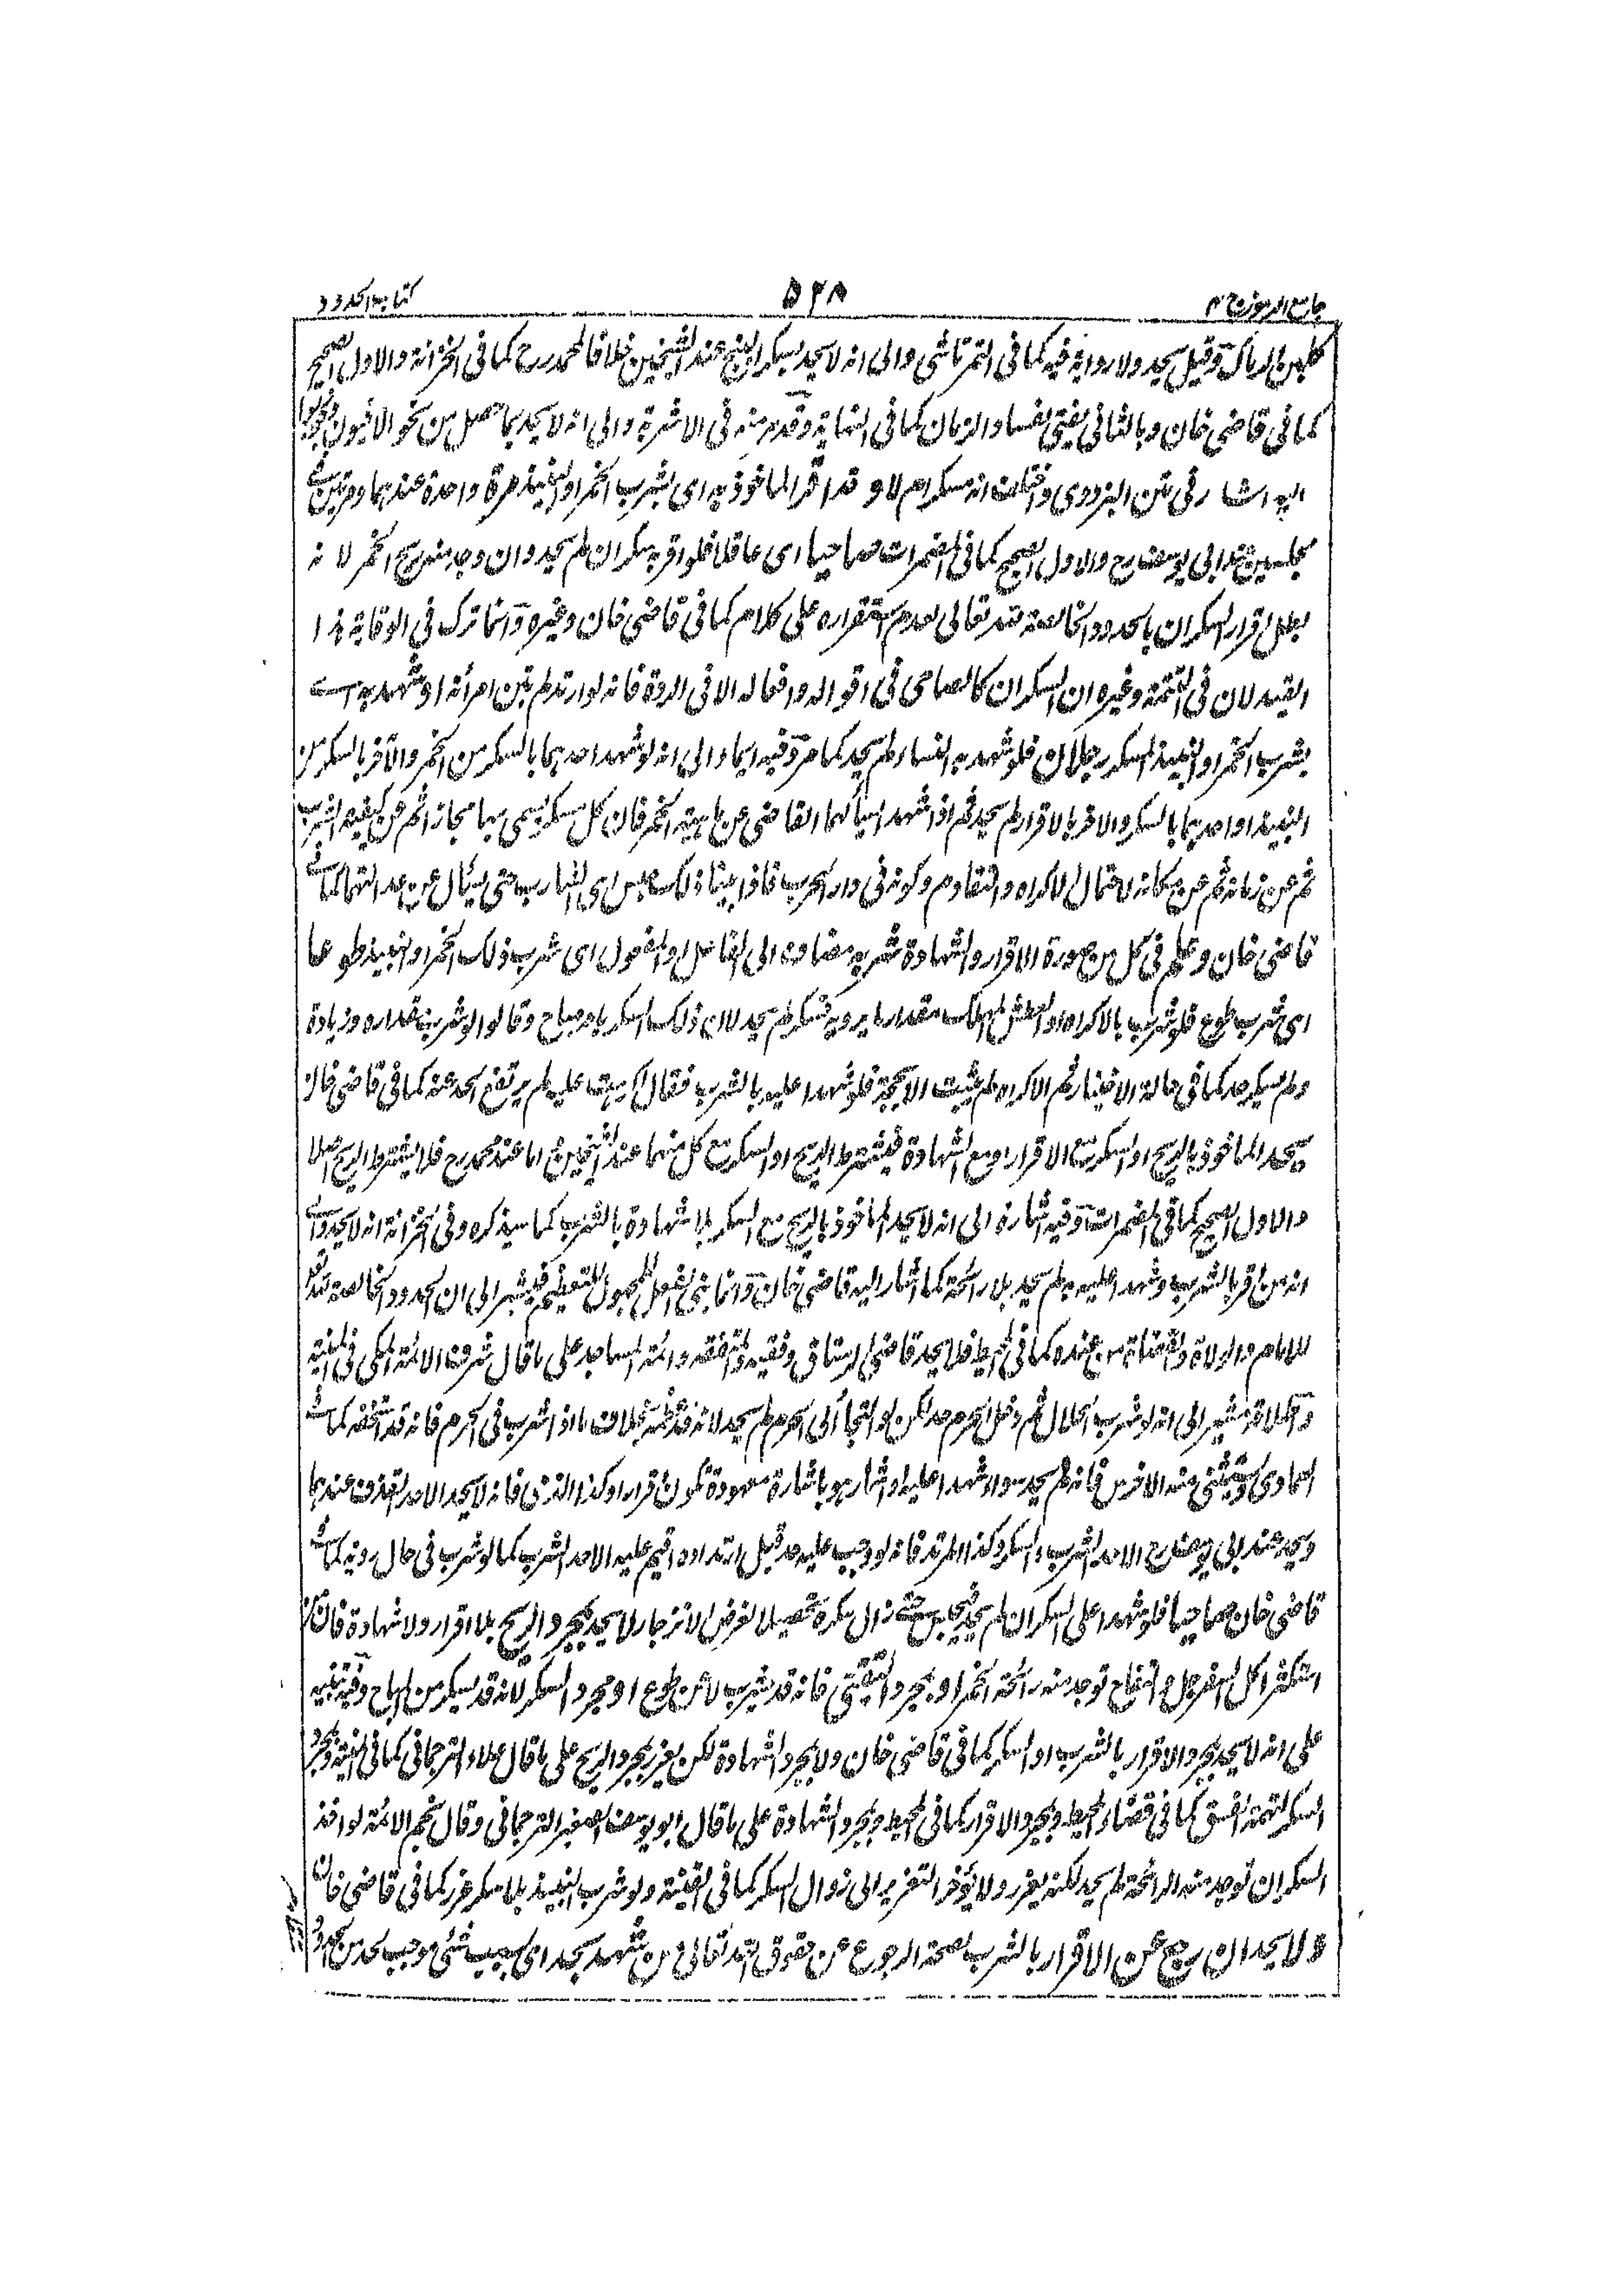 جامع الرموز ج ۲ ۵۲۸ كتاب الحدود
كلبن الرماك وقيل يحد ولا رواية فيه كما فى التمرتاشى والى انه لا يحد بسكر البنج عند الشيخين خلافا لمحمد رح كما فى الخزانة والاول الصحيح
كما فى قاضى خان وبالثانى يفتى لفساد الزمان كما فى النهاية وقد مر منه فى الاشربة والى انه لا يحد بما حصل من نحو الافيون
اليه اشار فى متن البزدوى واختلف انه مسكر ام لا و قد اقر الماخوذ به اى بشرب الخمر او النبيذ مرة واحدة عندهما ومرتين فى
مجلسين عند ابى يوسف رح والاول الصحيح كما فى المضمرات صاحيا اى عاقلا فلو اقر به سكران لم يحد وان وجد منه ريح الخمر لا نه
بطل اقرار السكران بالحدود الخالصة لله تعالى لعدم استقراره على كلام كما فى قاضى خان وغيره وانما ترك فى الوقاية هذا
القيد لان فى التتمة وغيره ان السكران كالصاحى فى اقواله وافعاله الا فى الردة فانه لو ارتد لم تبن امرأته او شهد به اے
بشرب الخمر او النبيذ المسكر رجلان فلو شهد به النساء لم يحد كما مر وفيه ايماء الى انه لو شهد احدهما بالسكر من الخمر والآخر بالسكر من
النبيذ او احدهما بالسكر والاخر بالاقرار لم يحد ثم اذا شهدا سيألهما القاضى عن ماهية الخمر فان كل مسكر يسمى بها مجازا ثم عن كيفية الشرب
ثم عن زمانه ثم عن مكانه لاحتمال الاكراه والتقادم وكونه فى دار الحرب فاذا بينا ذلك حبس اى الشارب حتى يسأل عن عدالتهما كما فے
قاضى خان وعلم فى كل من صورة الاقرار والشهادة شربه مضاف الى الفاعل او المفعول اى شرب ذلك الخمر او النبيذ طوعا
اى شرب طوع فلو شرب بالاكراه او العطش المهلك مقدار ما يرويه فسكر لم يحد لان ذلك السكر بامر مباح وقالوا لو شرب مقداره وزيادة
ولم يسكر حد كما فى حالة الاختيار ثم الاكراه لم يثبت الا بحجة فلو شهدا عليه بالشرب فقال اكرهت عليه لم يرتفع الحد عنه كما فى قاضى خان
يحد الماخوذ بالريح او السكر مع الاقرار او مع الشهادة فيشترط الريح او السكر مع كل منهما عند الشيخين اما عند محمد رح فلا يشترط الريح اصلا
والاول الصحيح كما فى المضمرات وفيه اشارة الى انه لا يحد الماخوذ بالريح مع السكر بلا شهادة بالشرب كما سيذكره وفى الخزانة انه لا يحد والى
انه من اقر بالشرب وشهد عليه به لم يحد بلا رائحة كما اشار اليه قاضى خان وانما بنى الفعل للمجهول للتعظيم فيشير الى ان الحدود الخالصة لله تعالى
للامام والولاة والقضاة عنده كما فى المحيط فلا يحد قاضى الرستاق وفقيهه والمتفقه وائمة المساجد على ما قال شرف الائمة المكى فى المنية
واطلاقه مشير الى انه لو شرب الحلال ثم دخل الحرم حد لكن لو التجأ الى الحرم لم يحد لانه قد عظمه بخلاف ما اذا شرب فى الحرم فانه قد استخفه كما فے
العمادى ويستثنى منه الاخرس فانه لم يحد سواء شهدا عليه او اشار هو باشارة معهودة تكون اقرارا وكذا الذمى فانه لا يحد الا حد القذف عندهما
ويحد عند ابى يوسف رح الا حد الشرب والسكر وكذا المرتد فانه لو وجب عليه حد قبل ارتداده اقيم عليه الا حد الشرب كما لو شرب فى حال ردته كما فے
قاضى خان صاحيا فلو شهدا على السكران لم يحد فيحبس حتى زال سكره تحصيلا لغرض الانزجار لا يحد بمجرد الريح بلا اقرار ولا شهادة فان
استكثر اكل السفرجل والتفاح توجد منه رائحة الخمر او بمجرد التقيئ فانه قد يشرب لا عن طوع او بمجرد السكر لانه قد يسكر من المباح وفيه تنبيه
على انه لا يحد بمجرد الاقرار بالشرب او السكر كما فى قاضى خان ولا بمجرد الشهادة لكن يعزر بمجرد الريح على ما قال علاء الترجمانى كما فى المنية وبمجرد
السكر لتهمة الفسق كما فى قضاء المحيط وبمجرد الاقرار كما فى المحيط وبمجرد الشهادة على ما قال ابو يوسف الصغير الترجمانى وقال نجم الائمة لو اخذ
السكران توجد منه الرائحة لم يحد لكنه يعزر ولا يؤخر التعزير الى زوال السكر كما فى القنية ولو شرب النبيذ بلا سكر عزر كما فى قاضى خان
و لا يحد ان رجع عن الاقرار بالشرب لصحة الرجوع عن حقوق الله تعالى من شهد بحد اى بسبب شئى موجب لحد من الحدود